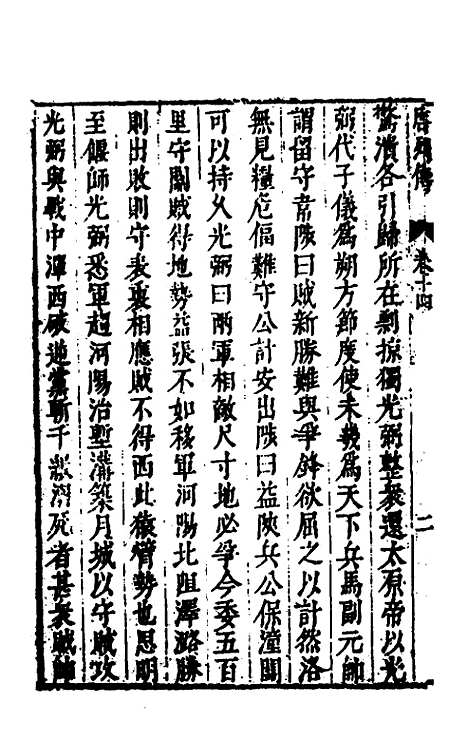 唐列傳 卷十四 二
驚潰各引歸所在剽掠獨光弼整衆還太原帝以光
弼代子儀爲朔方節度使未幾爲天下兵馬副元帥
謂留守韋陟曰賊新勝難與爭鋒欲屈之以計然洛
無見糧危偪難守公計安出陟曰益陝兵公保潼關
可以持久光弼曰兩軍相敵尺寸地必爭今委五百
里守關賊得地勢益張不如移軍河陽北阻澤潞勝
則出敗則守表裏相應賊不得西此猿臂勢也思明
至偃師光弼悉軍趨河陽治塹溝築月城以守賊攻
光弼與戰中潬西破逆黨斬千級溺死者甚衆賊帥